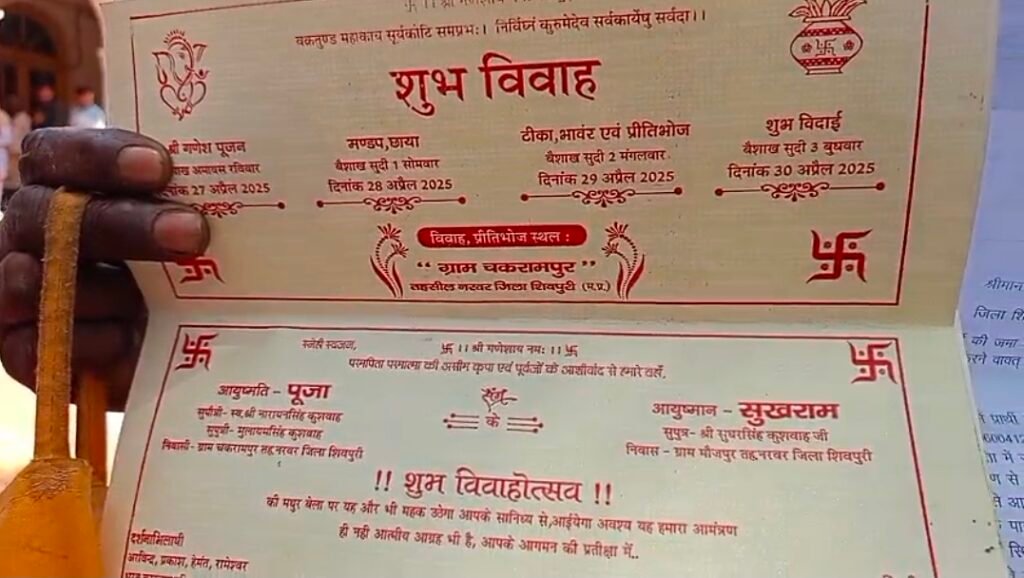 ।। श्री गणेशाय नमः
वक्रतुण्ड महाकाय सूर्यकोटि समप्रभः। निर्विघ्नं कुरुमेदेव सर्वकार्येषु सर्वदा।।
शुभ विवाह
श्री गणेश पूजन
अमावस रविवार
27 अप्रैल 2025
मण्डप,छाया
बैशाख सुदी 1 सोमवार
दिनांक 28 अप्रैल 2025
टीका,भावंर एवं प्रीतिभोज
बैशाख सुदी 2 मंगलवार
दिनांक 29 अप्रैल 2025
शुभ विदाई
बैशाख सुदी 3 बुधवार
दिनांक 30 अप्रैल 2025
विवाह, प्रीतिभोज स्थल :
“ ग्राम चकरामपुर ”
तहसील नरवर जिला शिवपुरी (म.प्र.)
स्नेही स्वजन,
।। श्री गणेशाय नमः ।।
परमपिता परमात्मा की असीम कृपा एवं पूर्वजों के आशीर्वाद से हमारे यहाँ,
आयुष्मति - पूजा
सुपौत्री- स्व.श्री नारायनसिंह कुशवाह
सुपुत्री- मुलायमसिंह कुशवाह
निवासी- ग्राम चकरामपुर तह.नरवर जिला शिवपुरी
संग
के
आयुष्मान - सुखराम
सुपुत्र- श्री सुघरसिंह कुशवाह जी
निवास - ग्राम मौजपुर तह.नरवर जिला शिवपुरी
!! शुभ विवाहोत्सव !!
की मधुर बेला पर यह और भी महक उठेगा आपके सानिध्य से,आईयेगा अवश्य यह हमारा आमंत्रण
ही नही आत्मीय आग्रह भी है, आपके आगमन की प्रतीक्षा में..
दर्शनाभिलाषी
अरविन्द, प्रकाश, हेमंत, रामेश्वर
श्रीमान
जिला
की जमा
करने वावत
प्रार्थी